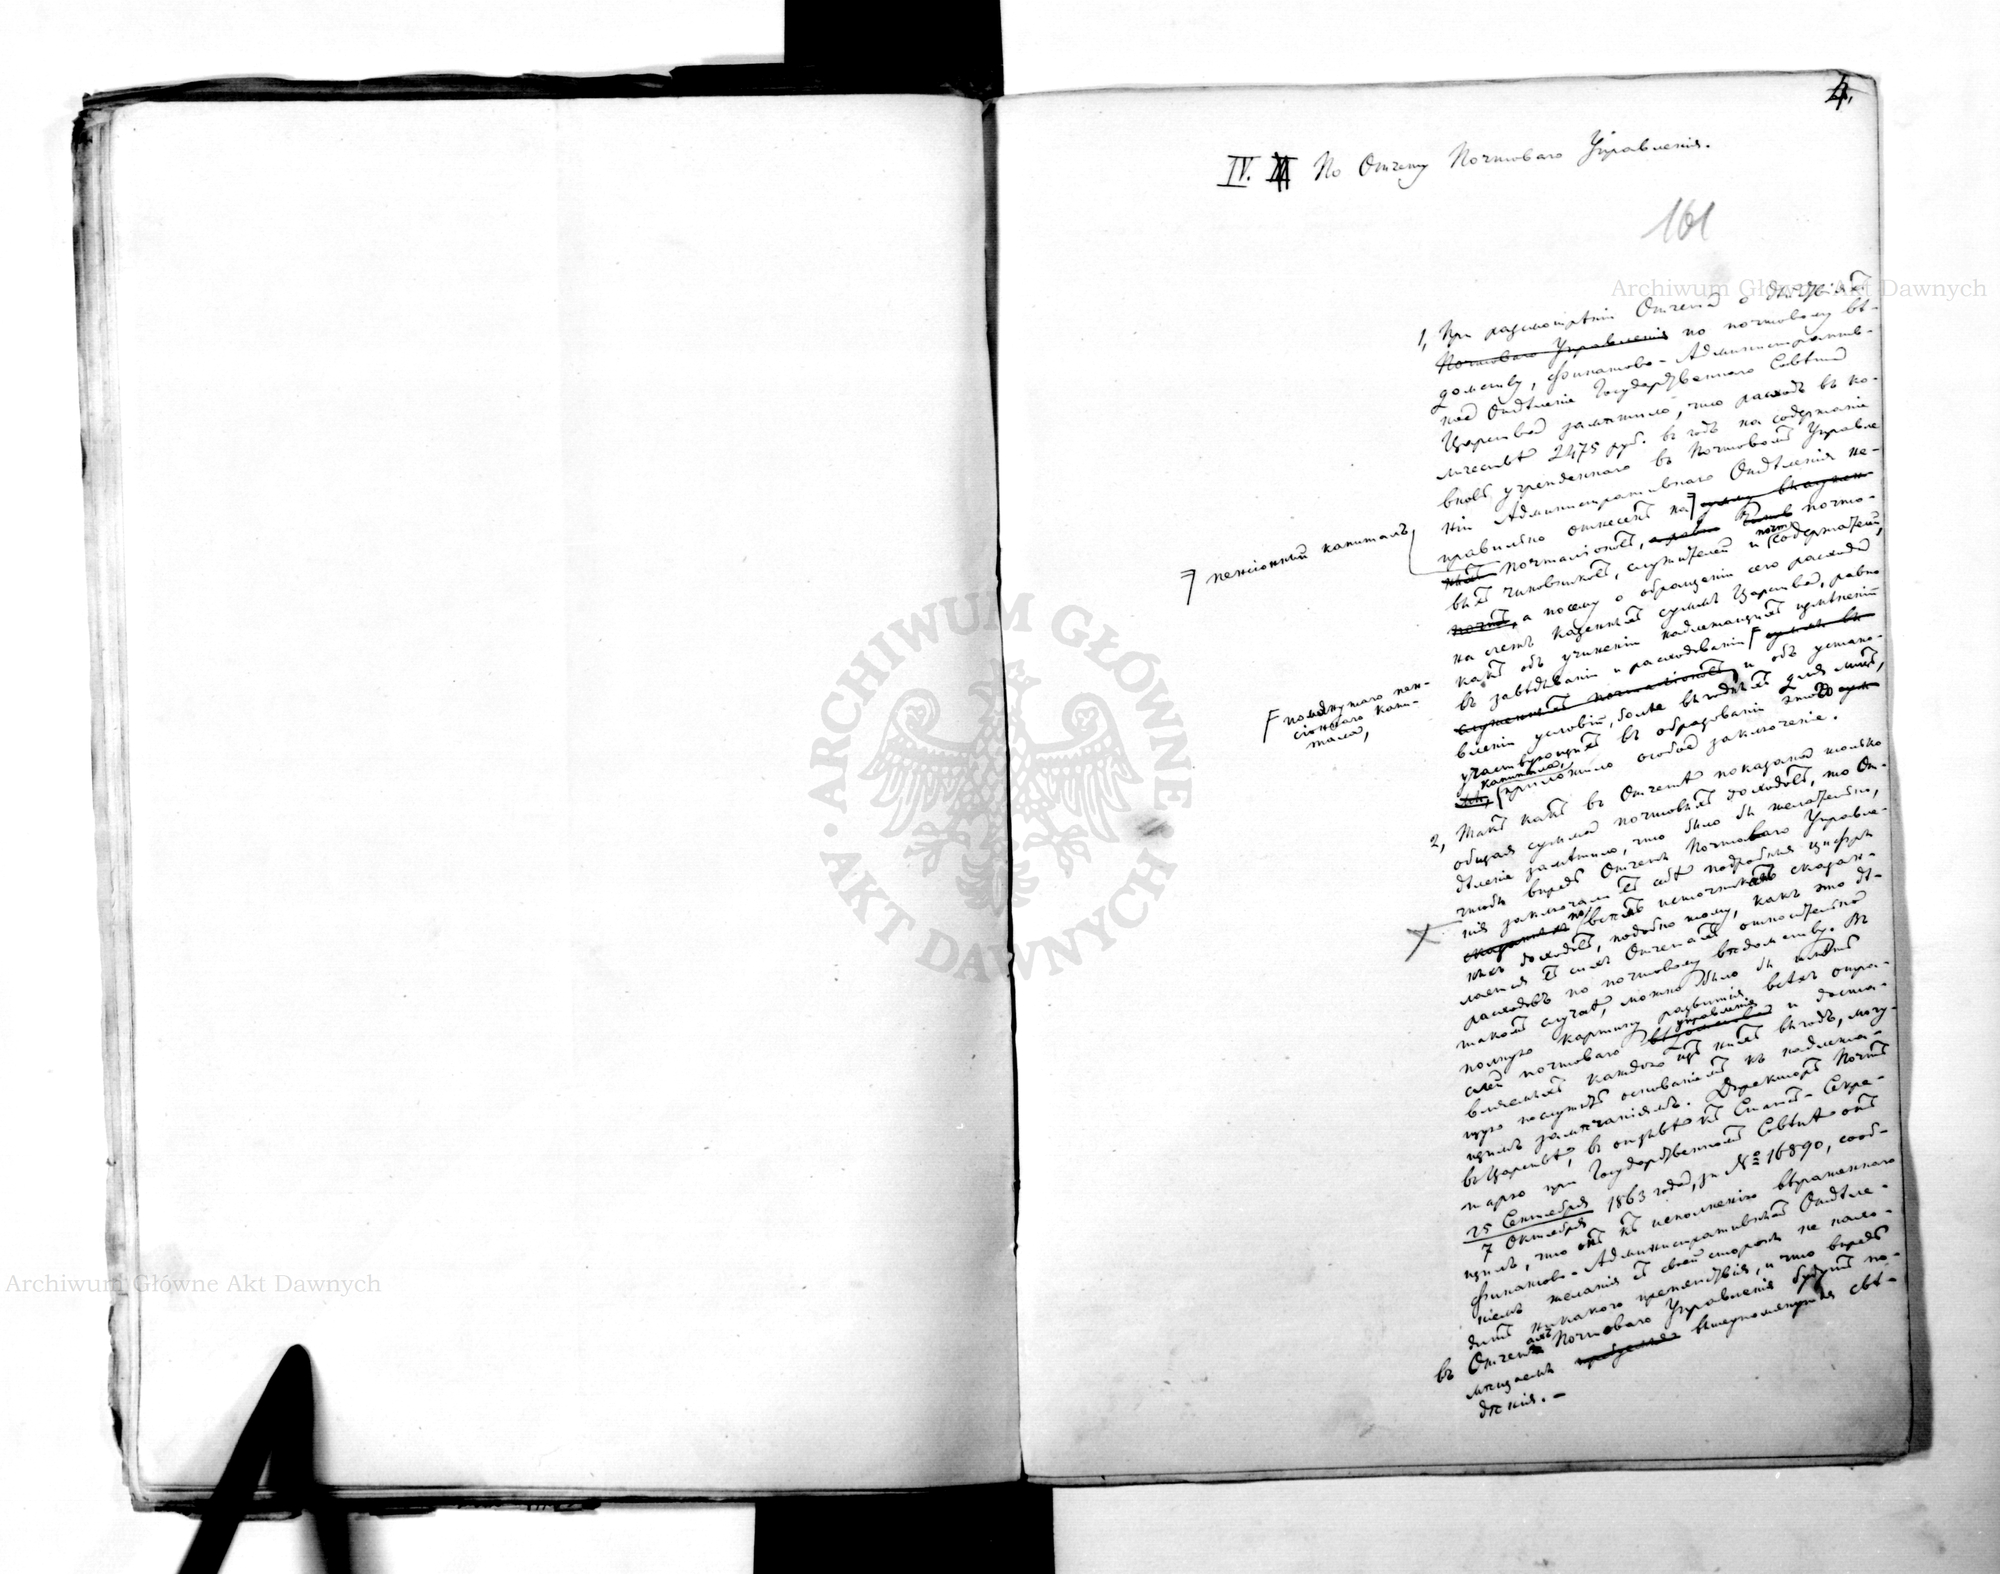 4.
IV. По Отчету Почтоваго Управленія.
161
1, При разсмотрѣніи Отчета о дѣйствіяхъ
Почтоваго Управленія по почтовому вѣ-
домству, Финансово-Административ-
ное Отдѣленіе Государственнаго Совѣта
Царства замѣтило, что расходъ въ ко-
личествѣ 2475 руб. въ годъ на содержаніе
вновь учрежденнаго въ Почтовомъ Управле
ніи Административнаго Отдѣленія не-
правильно отнесенъ на
почталіоновъ, почто-
выхъ чиновниковъ, служителей и почт содержателей,
а посему о обращеніи сего расхода
на счетъ казенныхъ суммъ Царства, равно
какъ объ учиненіи надлежащихъ измѣненій
въ завѣдываніи и расходованіи
почталіоновъ и объ устано-
вленіи условій, болѣе выгодныхъ для лицъ,
участвующихъ въ образованіи этого
капитала, приложило особое заключеніе.
пенсіонный капиталъ
помянутаго пен-
сіоннаго капи-
тала,
2, Такъ какъ въ Отчетѣ показана только
общая сумма почтовыхъ доходовъ, то От-
дѣленіе замѣтило, что было бы желательно,
чтобы впредь Отчеты Почтоваго Управле-
нія заключали въ себѣ подробныя цифры
по всѣмъ источникамъ сказан-
ныхъ доходовъ, подобно тому, какъ это дѣ-
лается въ сихъ Отчетахъ относительно
расходовъ по почтовому вѣдомству. Въ
такомъ случаѣ, можно было бы имѣть
полную картину развитія всѣхъ отра-
слей почтоваго управленія и доста-
вляемыхъ каждою изъ нихъ выгодъ, могу-
щую послужить основаніемъ къ надлежа-
щимъ замѣчаніямъ. Директоръ Почтъ
въ Царствѣ, въ отзывѣ къ Статсъ-Секре-
тарю при Государственномъ Совѣтѣ отъ
25 Сентября 1863 года, за № 16890, сооб-
7 Октября
щилъ, что онъ къ исполненію выраженнаго
Финансово-Административнымъ Отдѣле-
ніемъ желанія съ своей стороны не нахо-
дитъ никакого препятствія, и что впредь
въ Отчетахъ Почтоваго Управленія будутъ по-
мѣщаемы вышеупомянутыя свѣ-
дѣнія.-
Archiwum Główne Akt Dawnych
Archiwum Główne Akt Dawnych
ARCHIWUM GŁÓWNE
AKT DAWNYCH